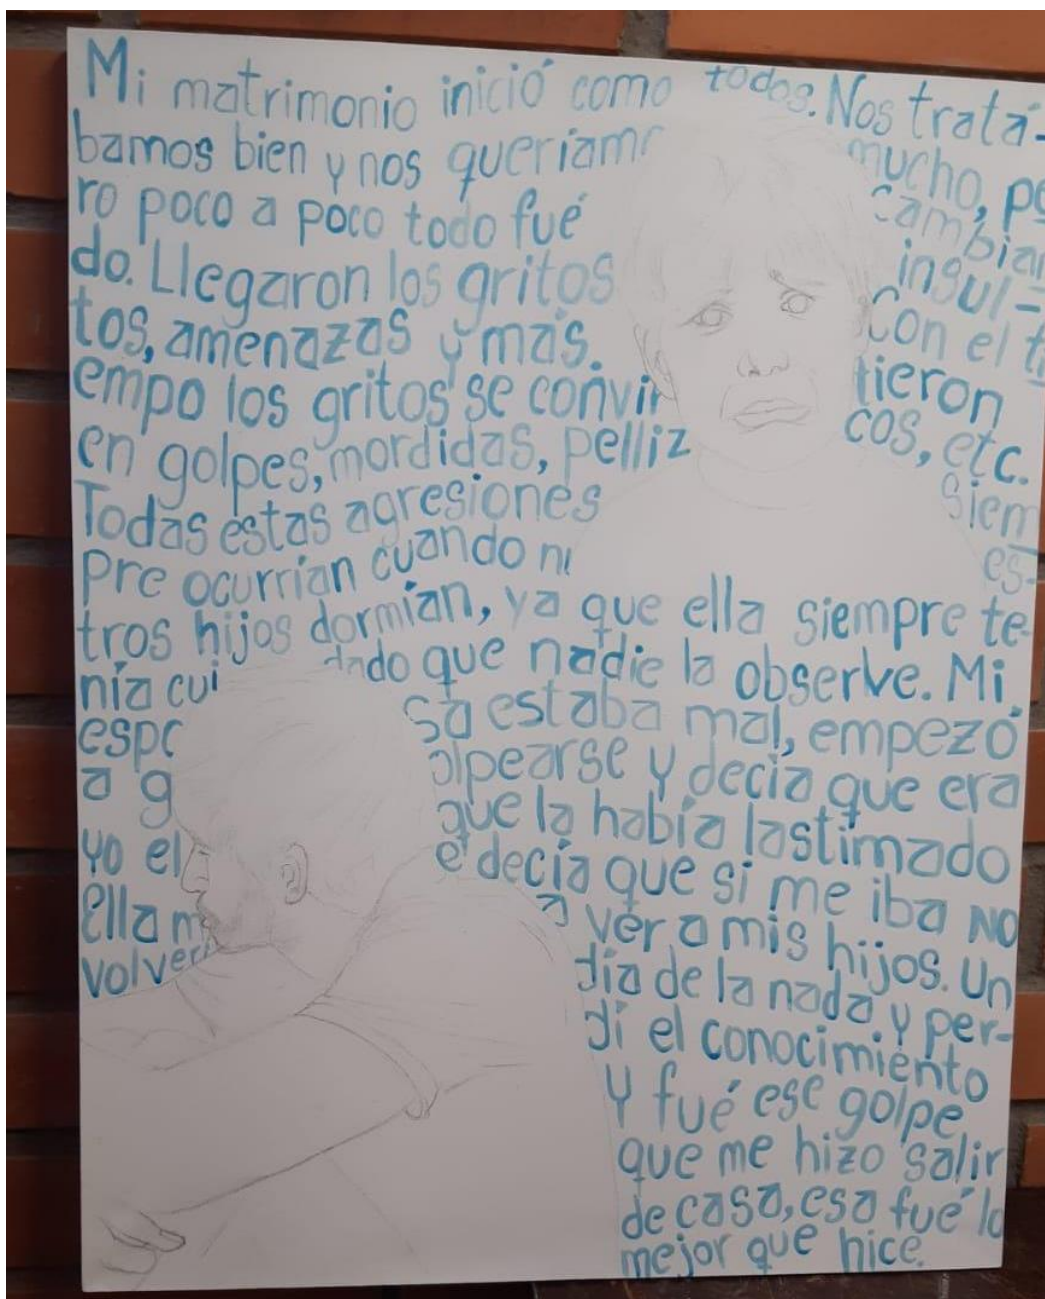 Mi matrimonio inició como todos. Nos tratá-
bamos bien y nos queriamo mucho, pe
ro poco a poco todo fué cambian
do. Llegaron los gritos insul-
tos, amenazas y más. Con el ti
empo los gritos se convir tieron
en golpes, mordidas, pelliz cos, etc.
Todas estas agresiones Siem
pre ocurrían cuando nu es-
tros hijos dormían, ya que ella siempre te-
nía cui dado que nadie la observe. Mi
espo sa estaba mal, empezó
a g olpearse y decía que era
yo el que la había lastimado
Ella m e decía que si me iba NO
volver a ver a mis hijos. Un
día de la nada y per-
dí el conocimiento
y fué ese golpe
que me hizo salir
de casa, esa fué lo
mejor que hice.